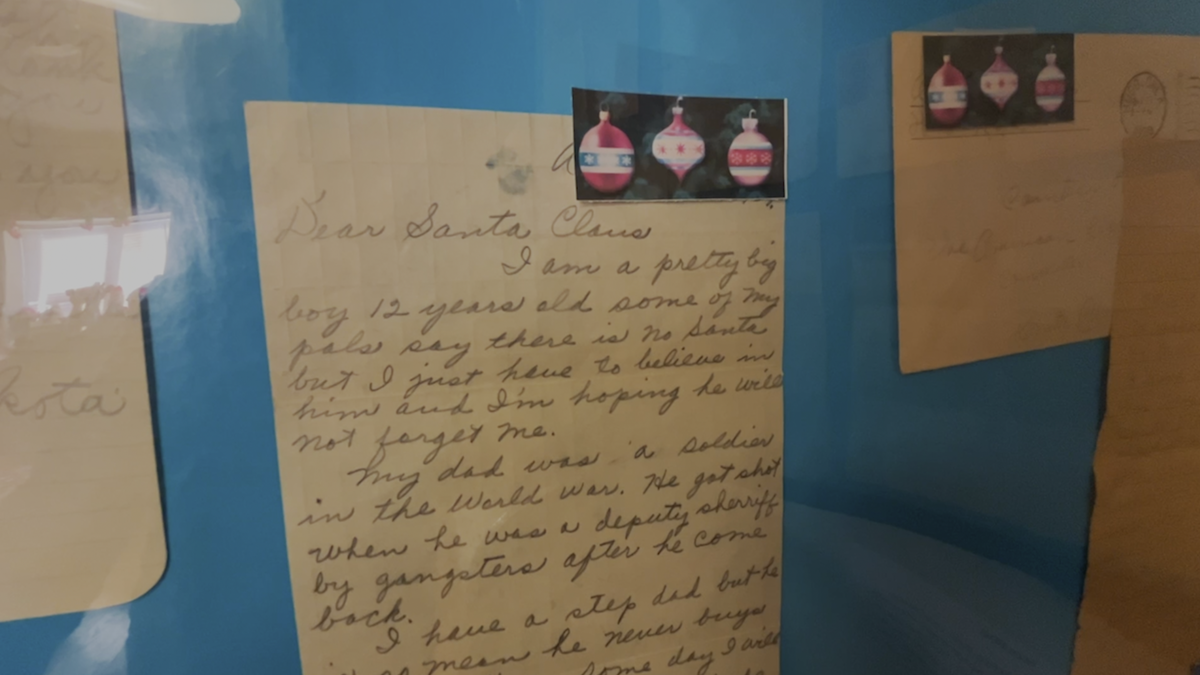 you
kota
Dear Santa Claus
I am a pretty big
boy 12 years old some of my
pals say there is no Santa
but I just have to believe in
him and I'm hoping he will
not forget me.
My dad was a soldier
in the World War. He got shot
when he was a deputy sherriff
by gangsters after he come
back.
I have a step dad but he
mean he never buys
Some day I will